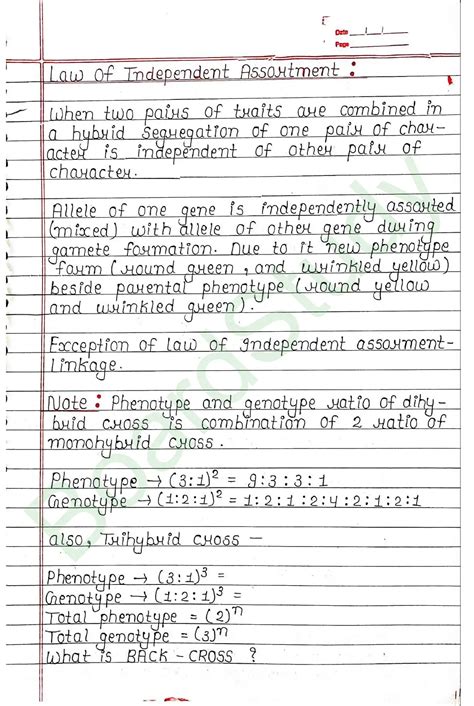 Date
Page
Law Of Independent Assortment :
When two pairs of traits are combined in
a hybrid segregation of one pair of char-
acter is independent of other pair of
character.
Allele of one gene is independently assorted
(mixed) with allele of other gene during
gamete formation. Due to it new phenotype
form (round green, and wrinkled yellow)
beside parental phenotype (round yellow
and wrinkled green).
Exception of law of Independent assorment-
Linkage.
Note : Phenotype and genotype ratio of dihy-
brid cross is combination of 2 ratio of
monohybrid cross.
Phenotype → (3:1)² = 9:3:3:1
Genotype → (1:2:1)² = 1:2:1:2:4:2:1:2:1
also, Trihybrid cross —
Phenotype → (3:1)³ =
Genotype → (1:2:1)³ =
Total phenotype = (2)ⁿ
Total genotype = (3)ⁿ
What is BACK-CROSS ?
BoardStudy